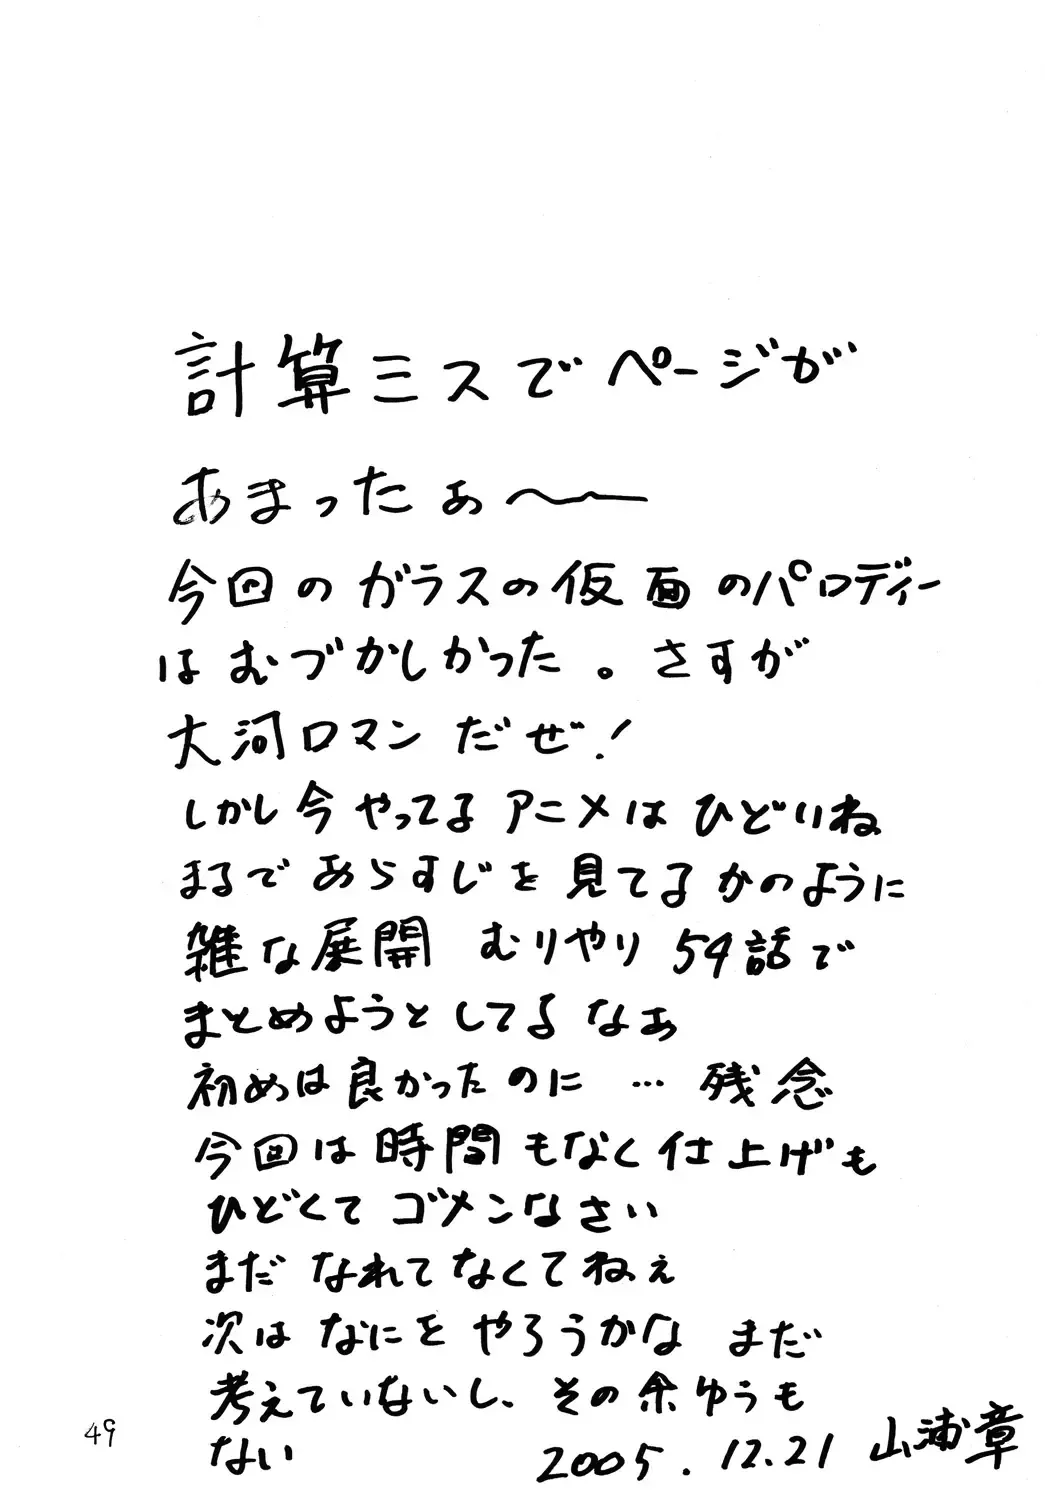 計算ミスでページが
あまったぁ〜
今回のガラスの仮面のパロディー
はむづかしかった。さすが
大河ロマンだぜ!
しかし今やってるアニメはひどいね
まるであらすじを見てるかのように
雑な展開 むりやり54話で
まとめようとしてるなぁ
初めは良かったのに … 残念
今回は時間もなく仕上げも
ひどくてゴメンなさい
まだなれてなくてねぇ
次はなにをやろうかな まだ
考えていないし、その余ゆうも
ない
2005.12.21 山浦章
49